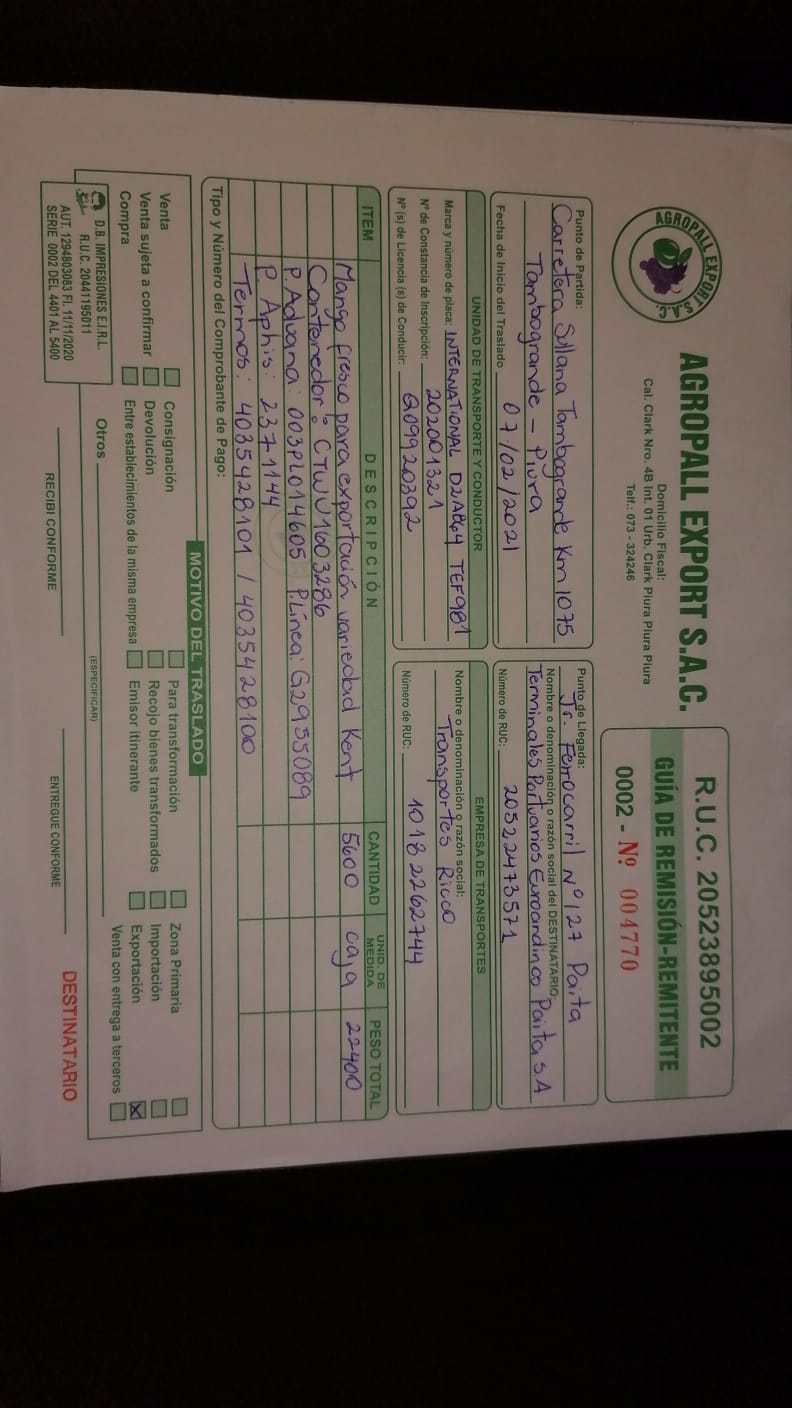 AGROPALL EXPORT S.A.C.
AGROPALL EXPORT S.A.C.
Domicilio Fiscal:
Cal. Clark Nro. 4B Int. 01 Urb. Clark Piura Piura Piura
Telf.: 073 - 324246
R.U.C. 20523895002
GUÍA DE REMISIÓN-REMITENTE
0002 - Nº 004770
Punto de Partida:
Carretera Sullana Tambogrande Km 1075
Tambogrande - Piura
Fecha de Inicio del Traslado 07/02/2021
Punto de Llegada:
Jr. Ferrocarril Nº 127 Paita
Nombre o denominación o razón social del DESTINATARIO:
Terminales Portuarios Euroandinos Paita S.A
Número de RUC: 20522473571
UNIDAD DE TRANSPORTE Y CONDUCTOR
Marca y número de placa: INTERNATIONAL D2A864 TEF981
Nº de Constancia de Inscripción: 202001321
Nº (s) de Licencia (s) de Conducir: Q09920392
EMPRESA DE TRANSPORTES
Nombre o denominación o razón social:
Transportes Ricco
Número de RUC: 10182262744
ITEM DESCRIPCIÓN CANTIDAD UNID. DE MEDIDA PESO TOTAL
Mango fresco para exportación variedad Kent 5600 caja 22400
Contenedor: CTWU1603286
P.Aduana: 003PL014605 P.Línea: G2955089
P. Aphis: 2371144
Termos: 4035428101 / 4035428100
Tipo y Número del Comprobante de Pago:
MOTIVO DEL TRASLADO
Venta Consignación Para transformación Zona Primaria
Venta sujeta a confirmar Devolución Recojo bienes transformados Importación
Compra Entre establecimientos de la misma empresa Emisor itinerante Exportación X
Venta con entrega a terceros
Otros
(ESPECIFICAR)
D.B. IMPRESIONES E.I.R.L.
R.U.C. 20441195011
AUT. 1294803083 FI. 11/11/2020
SERIE 0002 DEL 4401 AL 5400
RECIBI CONFORME
ENTREGUE CONFORME
DESTINATARIO